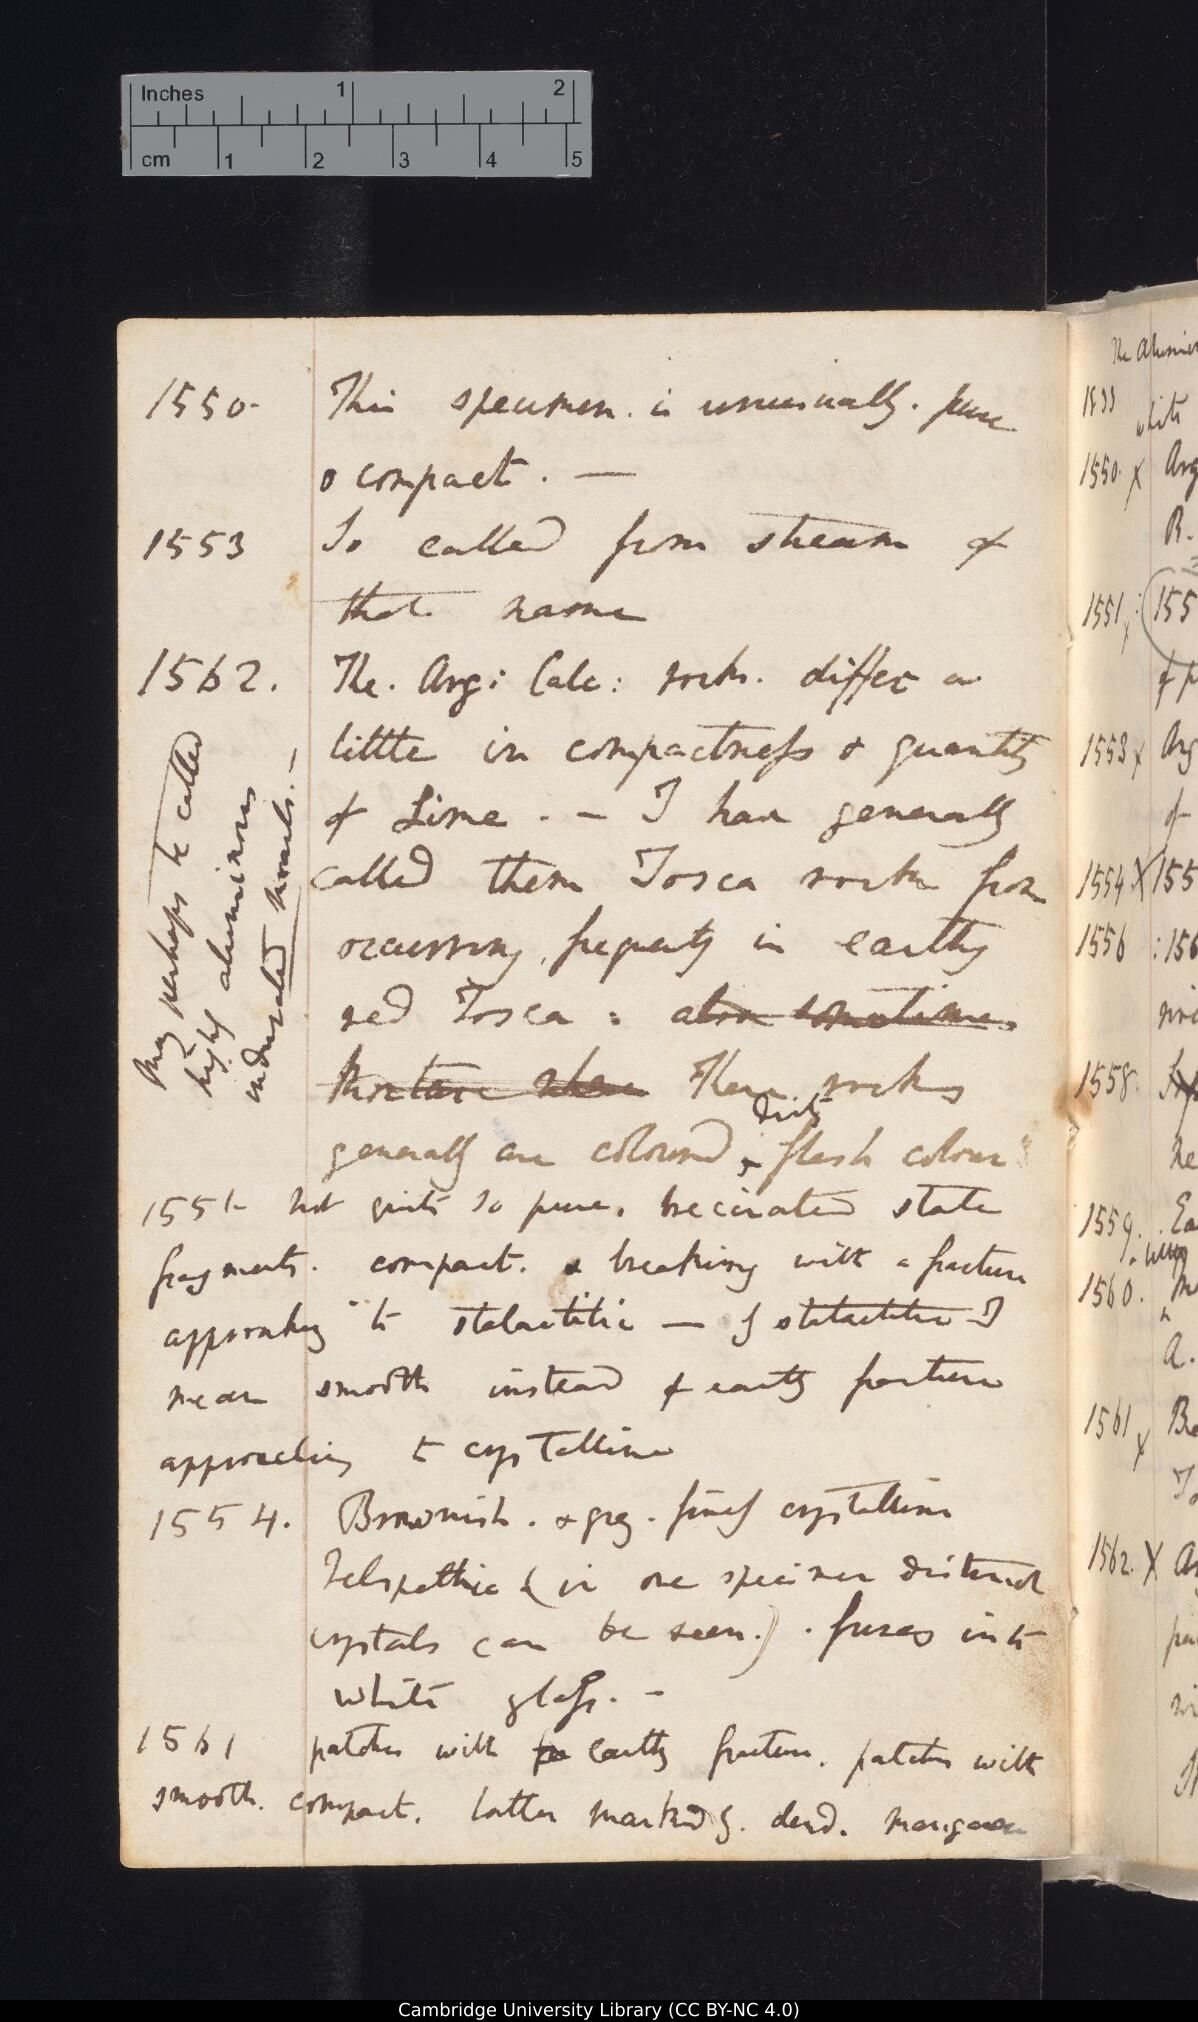 Inches 1 2
cm 1 2 3 4 5
1550. This specimen. is unusually. pure
& compact. —
1553 So called from stream of
that name
1562. The. Arg: Calc: rocks. differ a
little in compactness & quantity
of Lime. — I have generally
called them Tosca rocks from
occurring, frequently in earthy
red Tosca: also sometimes
These rocks
generally are coloured dirty flesh colour
May perhaps be called
highly aluminous
indurated marls. —
1551 not quite so pure. brecciated state
fragments. compact. & breaking with a fracture
approaching to stalactitic — by stalactitic I
mean smooth instead of earthy fracture
approaching to crystalline
1554. Brownish. & grey. finely crystalline
Felspathic (in one specimen distinct
crystals can be seen.). fuses into
white glass. —
1561 patches with earthy fracture. patches with
smooth. compact. latter marked by. dend. manganese
The
1533 white
1550 X Arg
R.
1551 x 155
of p
1553 x Arg
of
1554 X 155
1556 : 156
1558.
he
1559. Ea
1560.
a.
1561 x Br
To
1562. X Ar
Cambridge University Library (CC BY-NC 4.0)